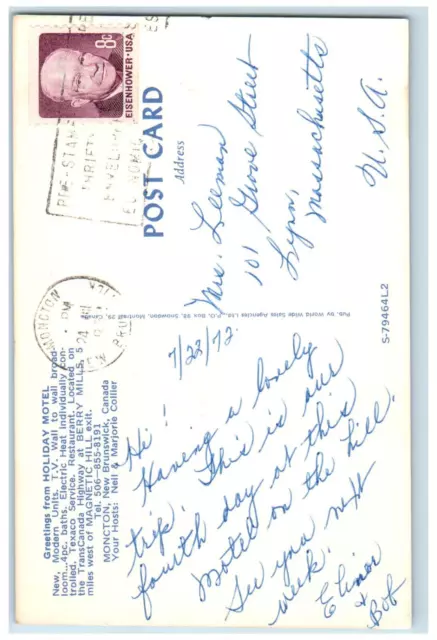 Greetings from HOLIDAY MOTEL
New, Modern Units. T.V. Wall to wall broad-
loom...4pc. baths. Electric Heat individually con-
trolled. Texaco Service. Restaurant. Located on
the TransCanada Highway at BERRY MILLS, 5
miles west of MAGNETIC HILL exit.
Tel. 506-855-8191
MONCTON, New Brunswick, Canada
Your Hosts: Neil & Marjorie Collier
7/22/72
Hi!
Having a lonely
trip. This is our
fourth day at this
motel on the hill.
See you next
week.
Elinor
&
Bob
Pub. by World Wide Sales Agencies Ltd., P.O. Box 88, Snowdon, Montreal 29, Canada
S-79464L2
POST CARD
Address
Mrs. Leeman
101 Grove Street
Lynn,
Massachusetts
U.S.A.
8c
EISENHOWER·USA
MONCTON
PM
24
THRIFTY